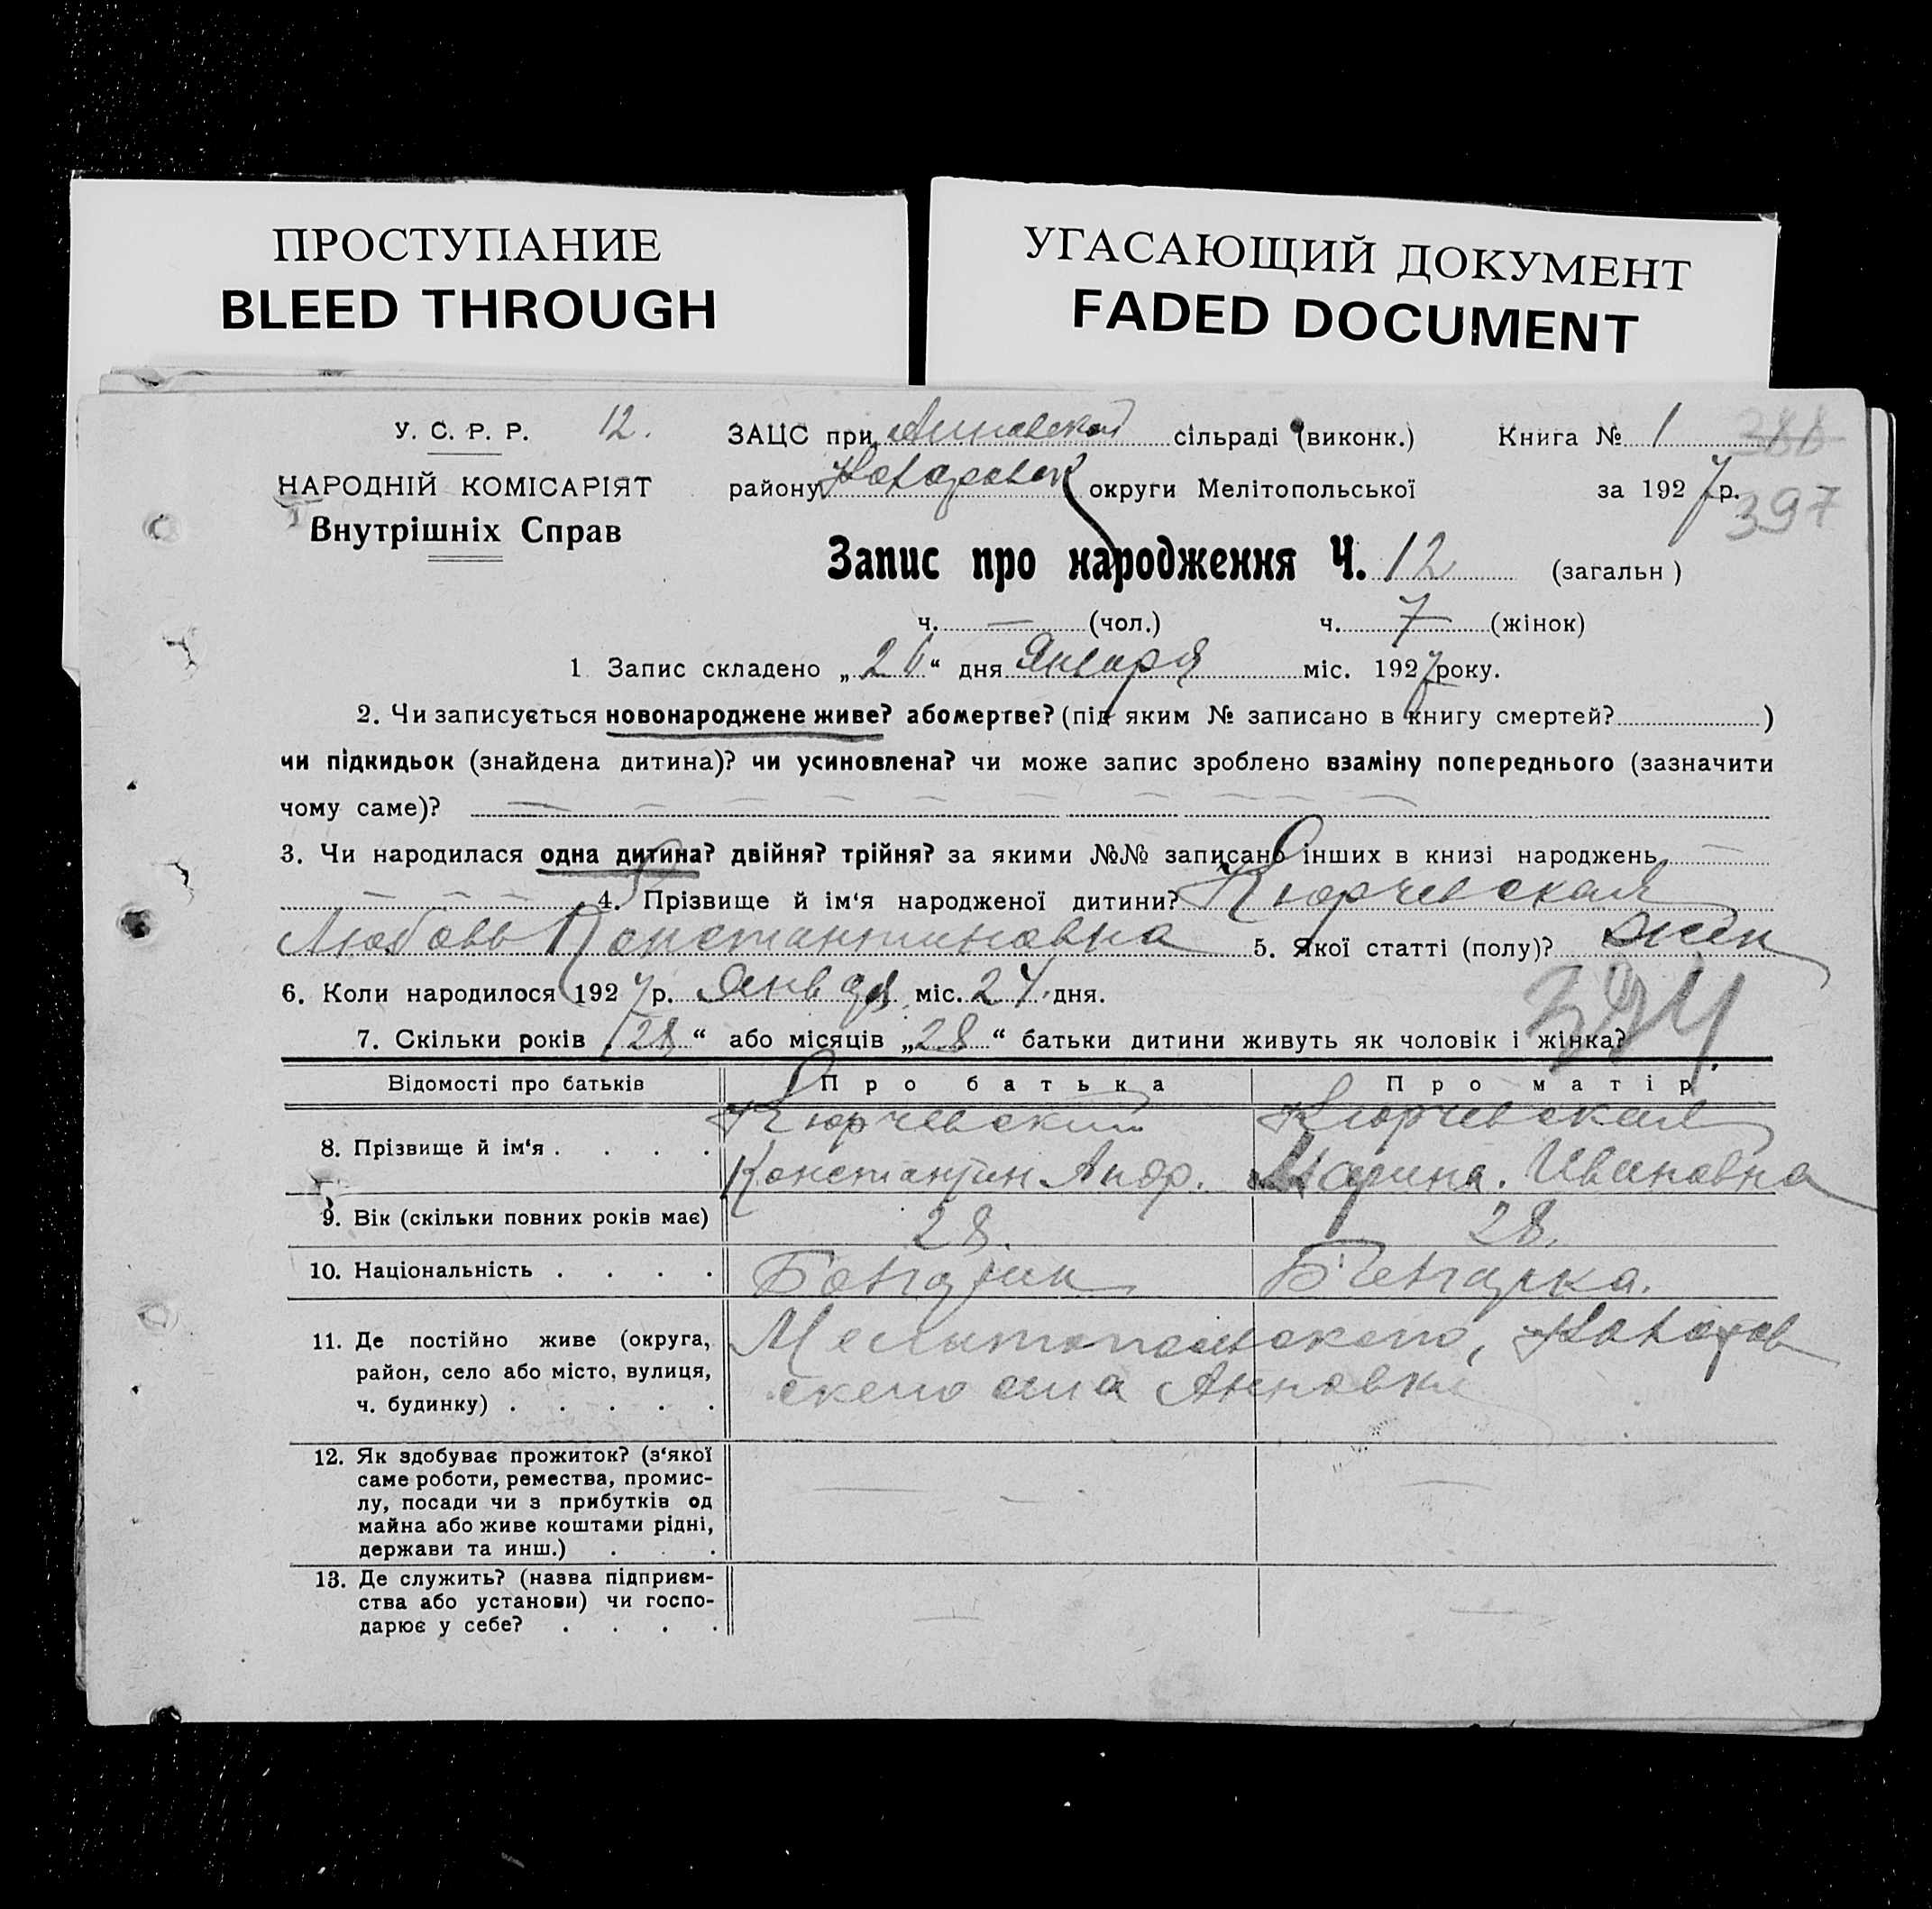 ПРОСТУПАНИЕ
BLEED THROUGH
УГАСАЮЩИЙ ДОКУМЕНТ
FADED DOCUMENT
У. С. Р. Р. 12.
НАРОДНІЙ КОМІСАРІЯТ
Внутрішніх Справ
ЗАЦС при Анновской сільраді (виконк.) Книга № 1 388
району округи Мелітопольської за 1927 р.
397
Запис про народження Ч. 12 (загальн)
ч. — (чол.) ч. 7 (жінок)
1 Запис складено „26“ дня Января міс. 1927 року.
2. Чи записується новонароджене живе? або мертве? (під яким № записано в книгу смертей? )
чи підкидьок (знайдена дитина)? чи усиновлена? чи може запис зроблено взаміну попереднього (зазначити
чому саме)?
3. Чи народилася одна дитина? двійня? трійня? за якими №№ записано інших в книзі народжень
4. Прізвище й ім‘я народженої дитини? Кюрчевская
Любовь Константиновна 5. Якої статті (полу)? жен
6. Коли народилося 1927 р. Января міс. 24 дня.
7. Скільки років „28“ або місяців „28“ батьки дитини живуть як чоловік і жінка?
Відомості про батьків Про батька Про матір
8. Прізвище й ім‘я . . . . Кюрчевский Кюрчевская
Константин Андр. Марина. Ивановна
9. Вік (скільки повних років має) 28. 28.
10. Національність . . . . Болгарин Болгарка.
11. Де постійно живе (округа,
район, село або місто, вулиця,
ч. будинку) . . . . .
Мелитопольского,
ского села Анновки
12. Як здобуває прожиток? (з‘якої
саме роботи, ремества, промис-
лу, посади чи з прибутків од
майна або живе коштами рідні,
держави та инш.) . . .
13. Де служить? (назва підприєм-
ства або установи) чи госпо-
дарює у себе? . . . .